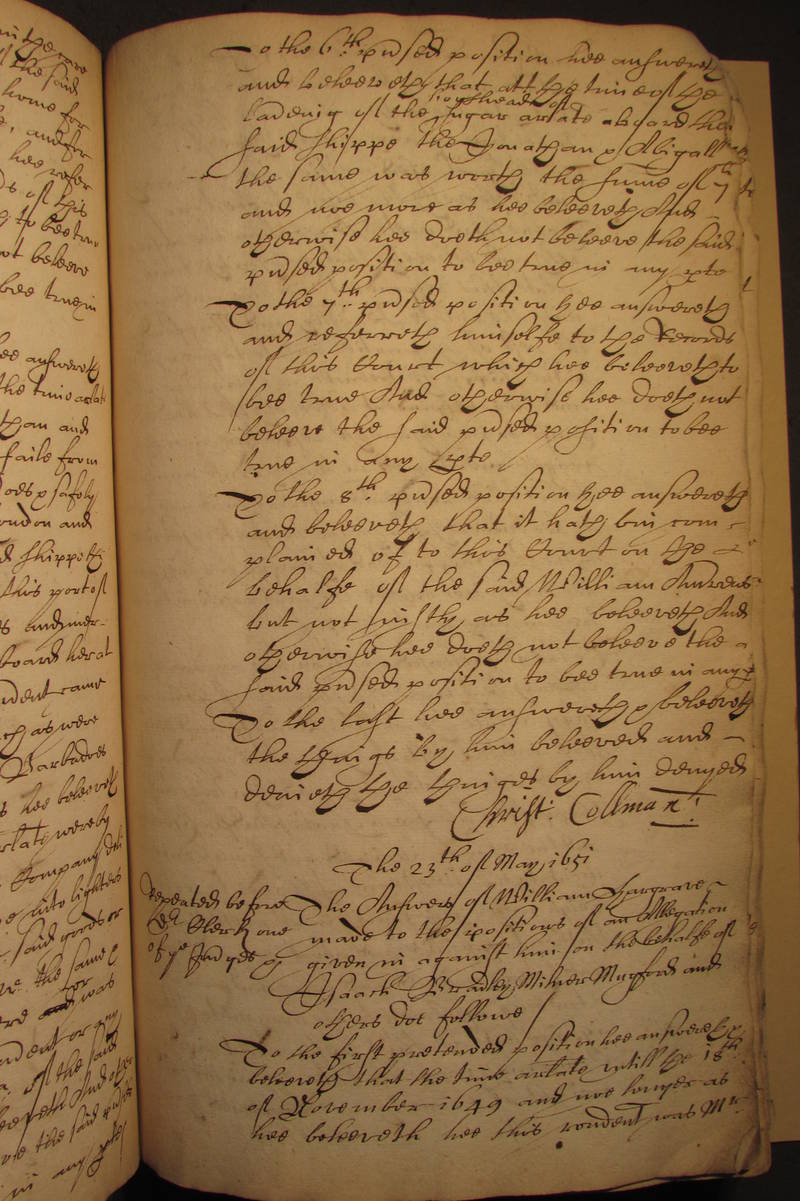 To the 6th. prtsed position hee answereth
and beleeveth that att the time of the
ladeing of the hogsheads of Sugar arlate aboard the
said shippe the Jonathan & Abigall
the same was worth the sume of
and noe more as hee beleeveth And
otherwise hee doeth not beleeve the said
prtsed position to bee true in any pte
To the 7th. prtsed position hee answereth
and referreth himselfe to the Records
of this Court which hee beleeveth to
bee true And otherwise hee doeth not
beleeve the said prtsed position to bee
true in any pte
To the 8th. prtsed position hee answereth
and beleeveth that it hath bin com-
plained of to this Court on the
behalfe of the said William Andrews
but not justly as hee beleeveth And
otherwise hee doeth not beleeve the
said prtsed position to bee true in any
To the last hee answereth & beleeveth
the things by him beleeved and
denieth the thinges by him denyed
Christ: Collman:
The 23th of May 1651
Repeated before
Dr Clerk one
of ye Judges
The Answers of William Hargrave
made to the positions of an Allegation
given in against him on the behalfe of
Isaack Bradley Milner Mugford and
others doe followe
To the first pretended position hee answereth &
beleeveth that the time arlate untill the 18th
of November 1649 and noe longer as
hee beleeveth hee this rondent was Mr
the said
home for
and for
hee refer
of this
to bee true
not beleeve
bee true in
hee answereth
the time arlate
than and
saile from
safely
London and
shippe
this port of
board her at
came
as were
Barbados
hee beleeveth
whereby
Company
into lighters
said goods or
the same &
for
was
or any
of the said
And other
the said
in any